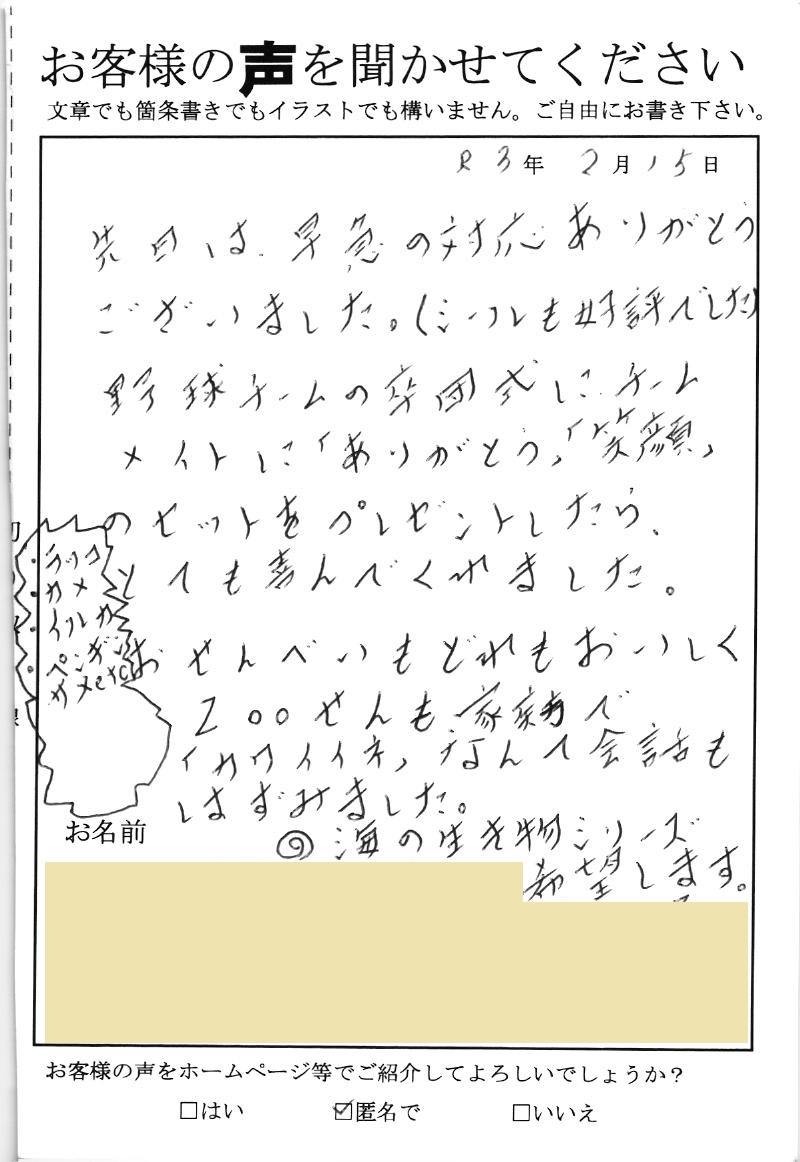 お客様の声を聞かせてください
文章でも箇条書きでもイラストでも構いません。ご自由にお書き下さい。
R3年 2月15日
先日は、早急の対応ありがとう
ございました。(シールも好評でした)
野球チームの卒団式に、チーム
メイトに「ありがとう」「笑顔」
のセットをプレゼントしたら、
とても喜んでくれました。
おせんべいもどれもおいしく
Zooせんも家族で
「カワイイネ」なんて会話も
はずみました。
◎海の生き物シリーズ
希望します。
・ラッコ
・カメ
・イルカ
・ペンギン
・カメetc
お名前
お客様の声をホームページ等でご紹介してよろしいでしょうか?
□はい ☑匿名で □いいえ